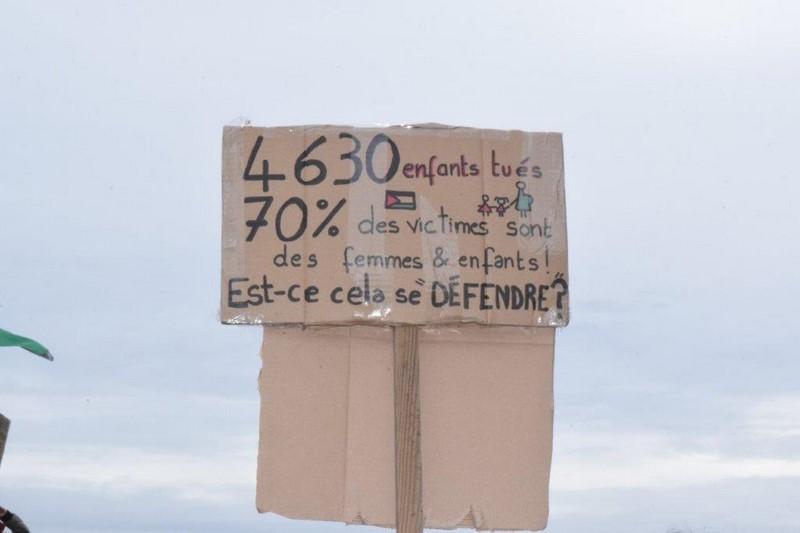 4630 enfants tués
70% des victimes sont
des femmes & enfants!
Est-ce cela se "DÉFENDRE"?